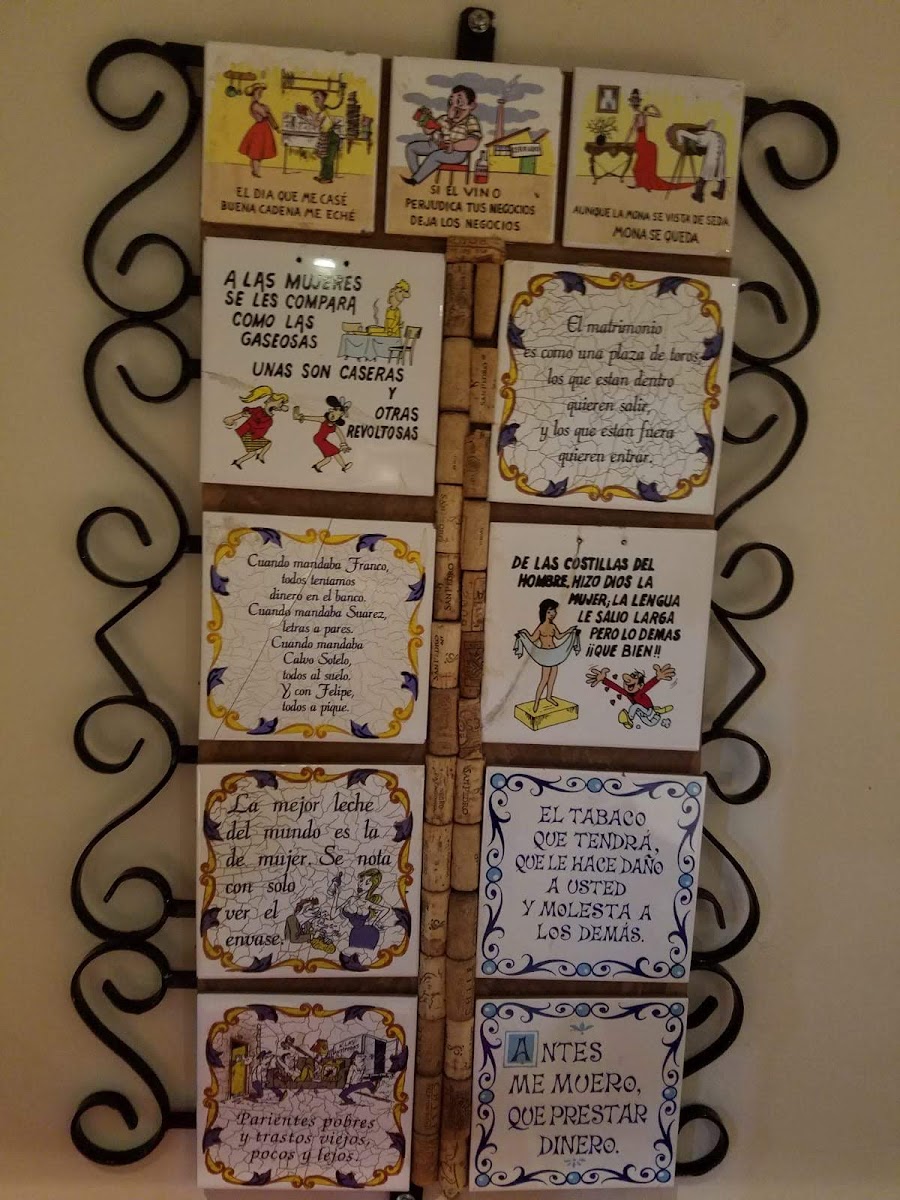 EL DIA QUE ME CASÉ
BUENA CADENA ME ECHÉ
SI EL VINO
PERJUDICA TUS NEGOCIOS
DEJA LOS NEGOCIOS
AUNQUE LA MONA SE VISTA DE SEDA
MONA SE QUEDA
A LAS MUJERES
SE LES COMPARA
COMO LAS
GASEOSAS
UNAS SON CASERAS
Y
OTRAS
REVOLTOSAS
El matrimonio
es como una plaza de toros,
los que estan dentro
quieren salir,
y los que estan fuera
quieren entrar.
Cuando mandaba Franco,
todos teníamos
dinero en el banco.
Cuando mandaba Suarez,
letras a pares.
Cuando mandaba
Calvo Sotelo,
todos al suelo.
Y con Felipe,
todos a pique.
DE LAS COSTILLAS DEL
HOMBRE, HIZO DIOS LA
MUJER; LA LENGUA
LE SALIO LARGA
PERO LO DEMAS
¡¡QUE BIEN!!
La mejor leche
del mundo es la
de mujer. Se nota
con solo
ver el
envase.
EL TABACO
QUE TENDRÁ,
QUE LE HACE DAÑO
A USTED
Y MOLESTA A
LOS DEMÁS.
Parientes pobres
y trastos viejos,
pocos y lejos.
ANTES
ME MUERO,
QUE PRESTAR
DINERO.
SAN PEDRO
SAN PEDRO